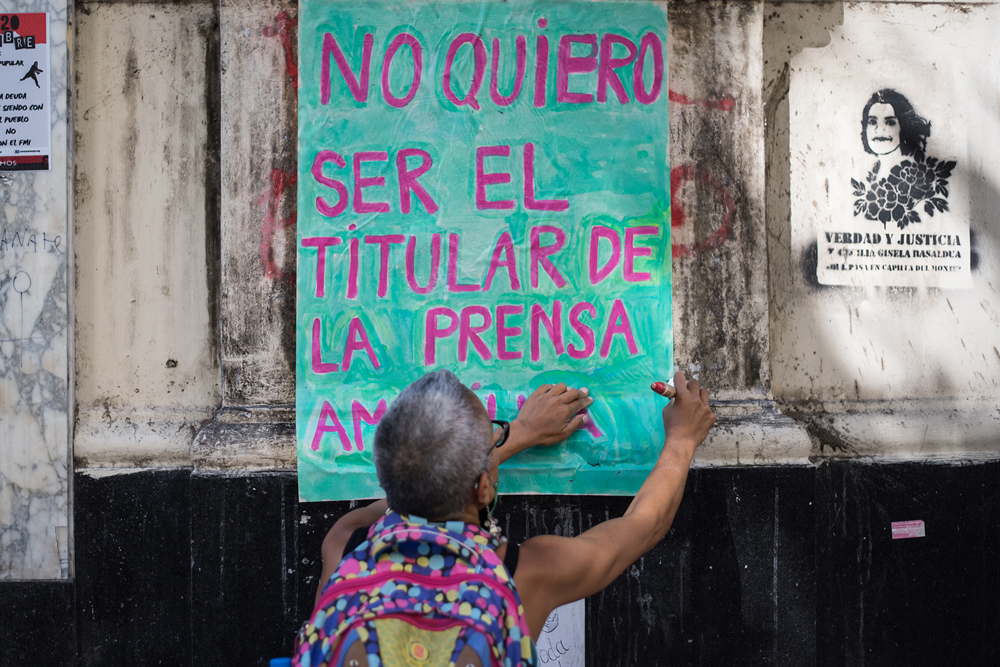 20
BRE
PULAR
DEUDA
SIENDO CON
L PUEBLO
NO
ON EL FMI
MOS
NO QUIERO
SER EL
TITULAR DE
LA PRENSA
VERDAD Y JUSTICIA
CECILIA GISELA BASALDUA